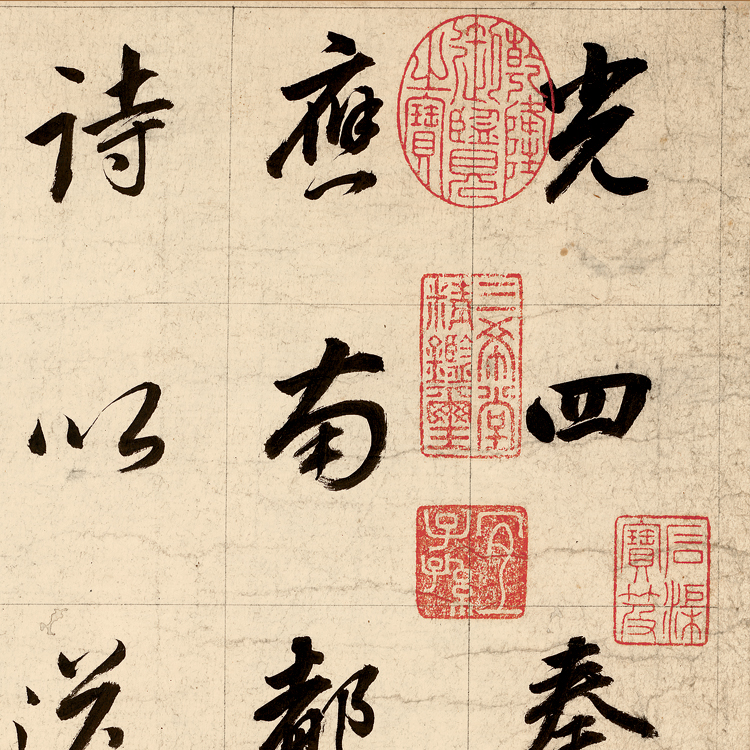 光四奉
石渠寶笈
乾隆御覽之寶
三希堂精鑑璽
宜子孫
應南都
詩以送